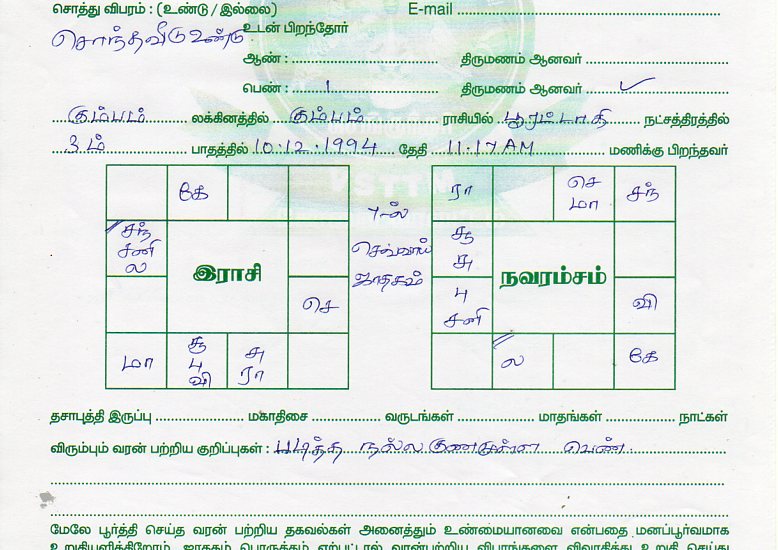 சொத்து விபரம் : (உண்டு / இல்லை) E-mail
சொந்தவீடு உண்டு உடன் பிறந்தோர்
ஆண் : திருமணம் ஆனவர் :
பெண் : 1 திருமணம் ஆனவர் : ✓
கும்பம் லக்கினத்தில் கும்பம் ராசியில் பூரட்டாதி நட்சத்திரத்தில்
3ம் பாதத்தில் 10.12.1994 தேதி 11.17AM மணிக்கு பிறந்தவர்
கே
சந்
சனி
ல
இராசி
செ
மா
சூ
பு
வி
சு
ரா
7-ல்
செவ்வாய்
ஜாதகம்
ரா
செ
மா
சந்
சூ
சு
நவரம்சம்
பு
சனி
வி
ல
கே
தசாபுத்தி இருப்பு மகாதிசை வருடங்கள் மாதங்கள் நாட்கள்
விரும்பும் வரன் பற்றிய குறிப்புகள் : படித்த நல்ல குணமுள்ள பெண்
மேலே பூர்த்தி செய்த வரன் பற்றிய தகவல்கள் அனைத்தும் உண்மையானவை என்பதை மனப்பூர்வமாக
உறுதியளிக்கிறோம். ஜாதகம் பொருத்தம் ஏற்பட்டால் வரன்பற்றிய விபரங்களை விவாதித்து உறுதி செய்து